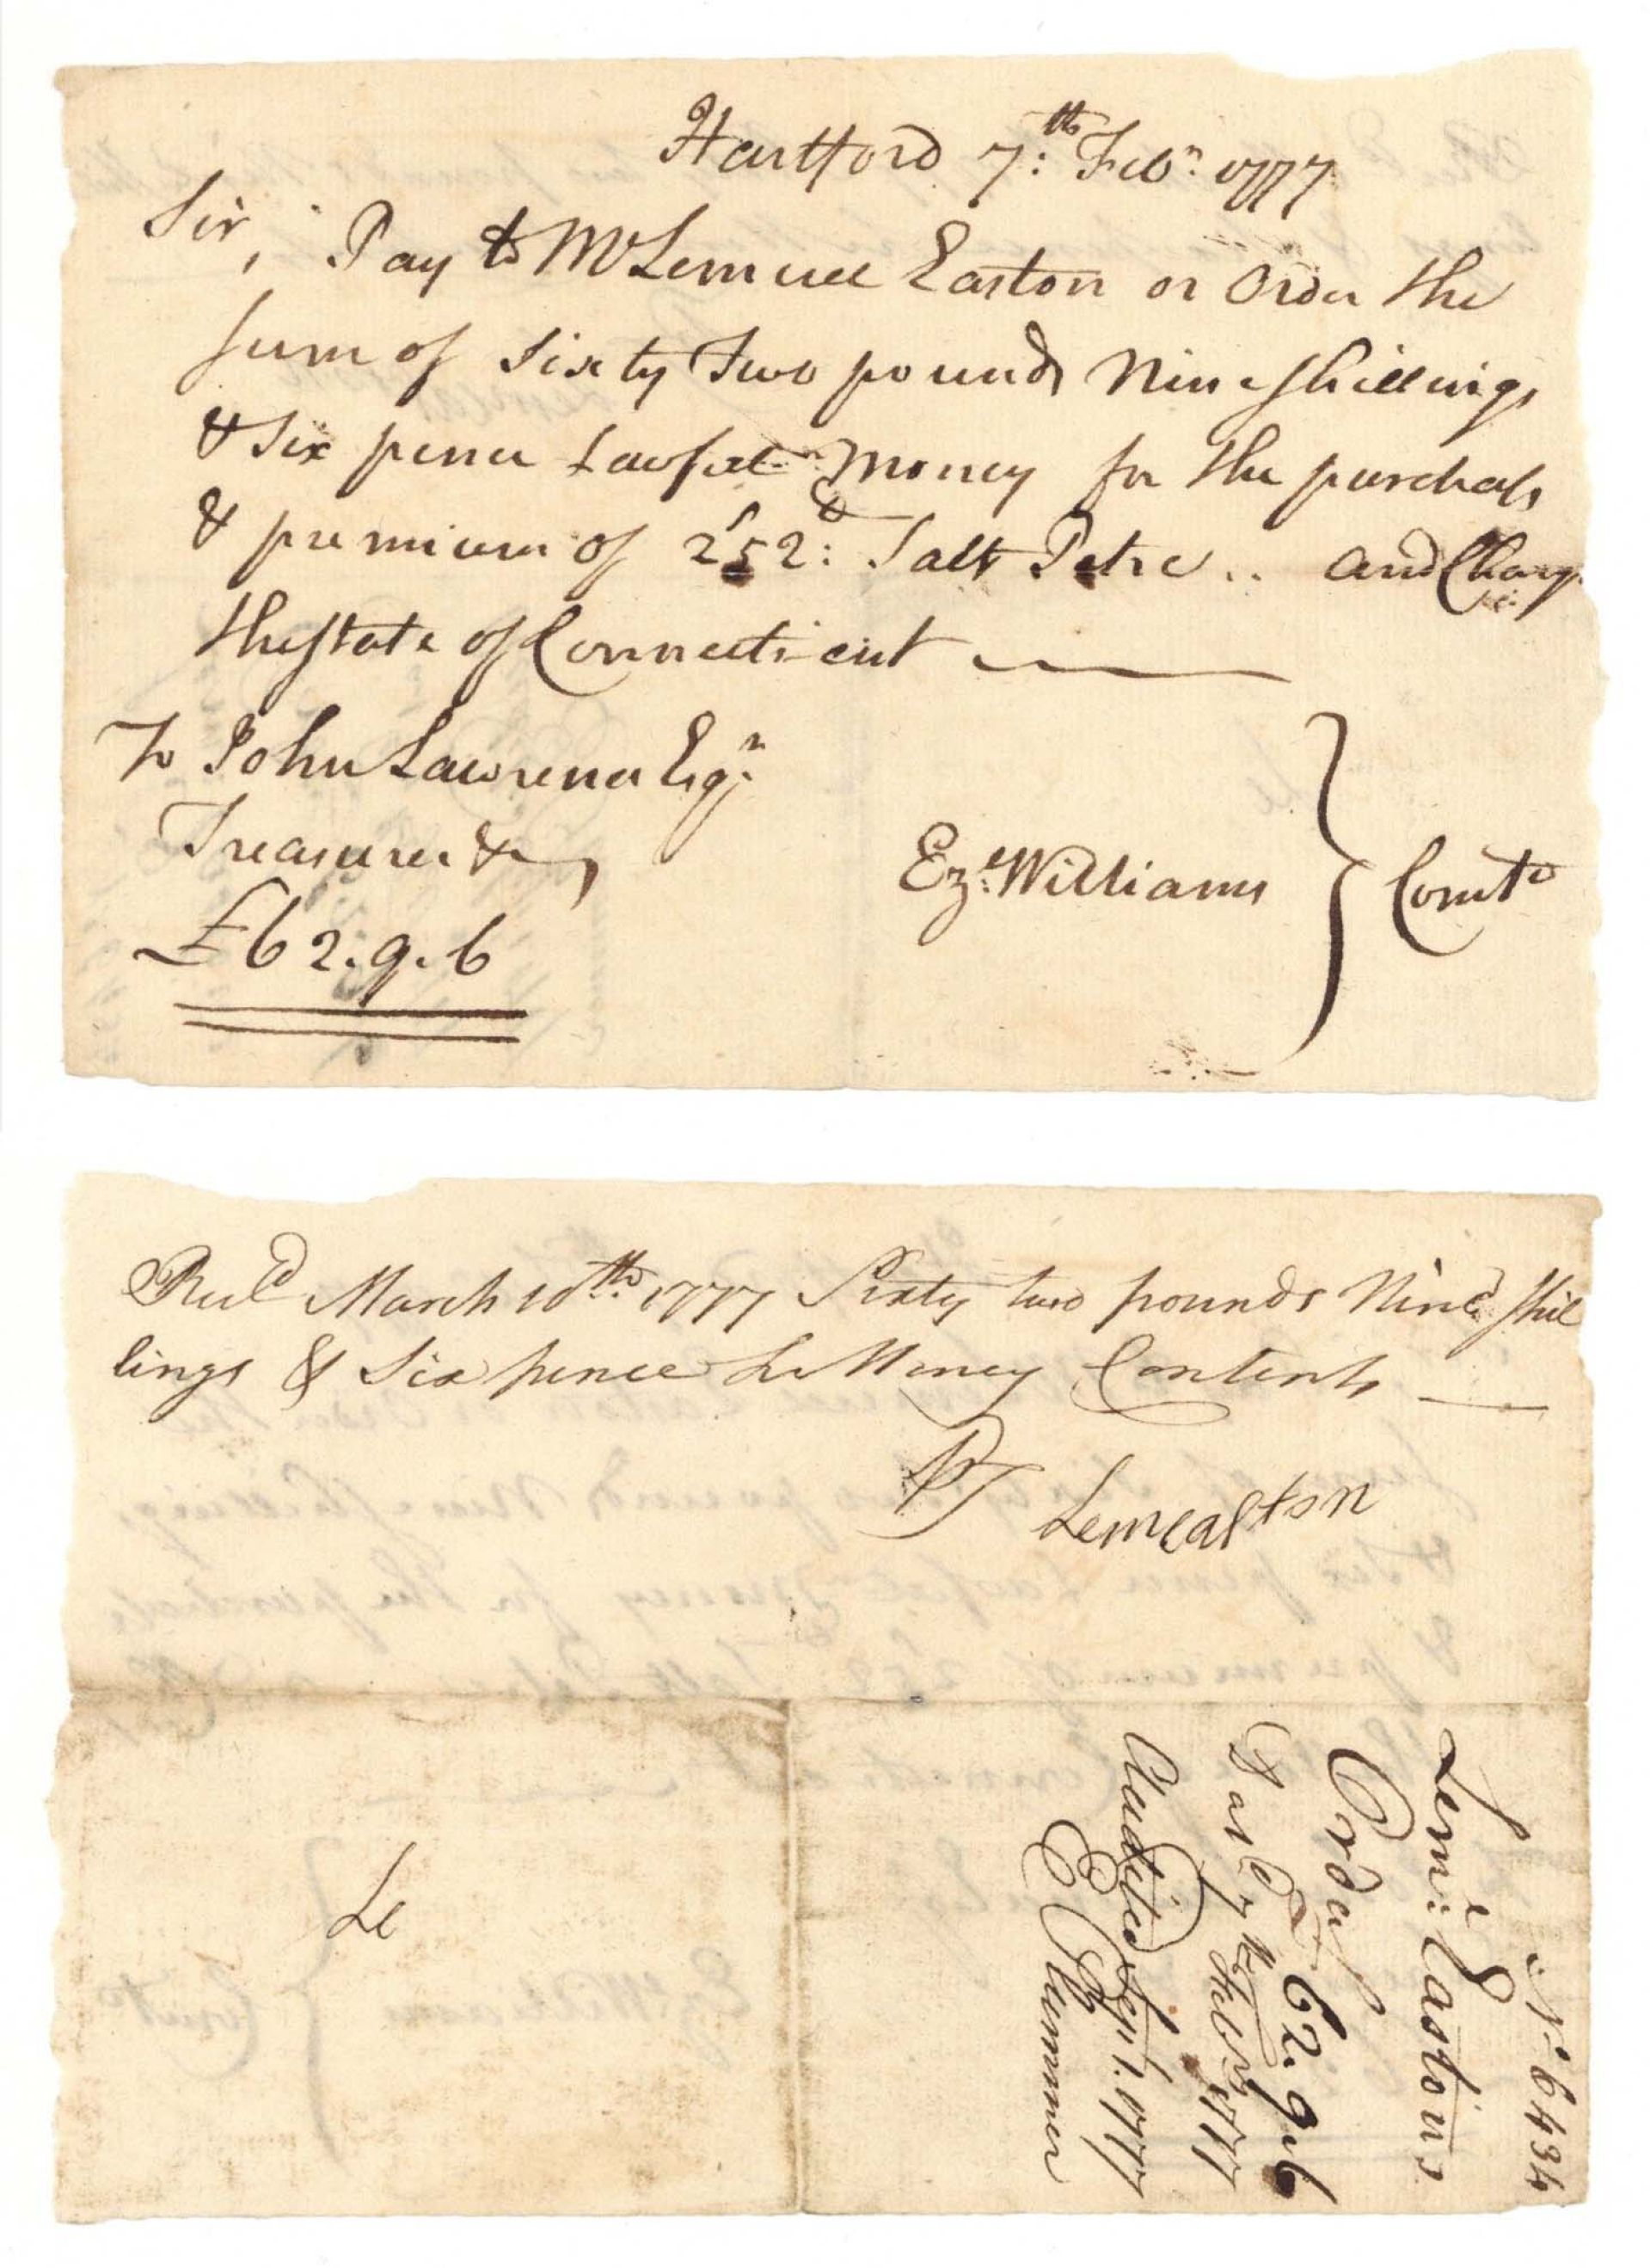 Hartford 7:th Febr. 1777
Sir, Pay to Mr Lemuel Easton or Order the
sum of Sixty Two pounds Nine shillings
& Six pence Lawful Money for the purchase
& premium of 252: Salt Petre .. and Charge
the state of Connecticut
To John Lawrence Esqr.
Treasurer &c,
£62.9.6
Eze: Williams } Comte
Recd March 10th. 1777 Sixty two pounds Nine Shil
lings & Six pence L Money Contents
Lem Easton
Le
No 6434
Leml: Easton's
Order
62.9.6
Dated 7th Feby 1777
Audited Sept. 1777
E Plummer